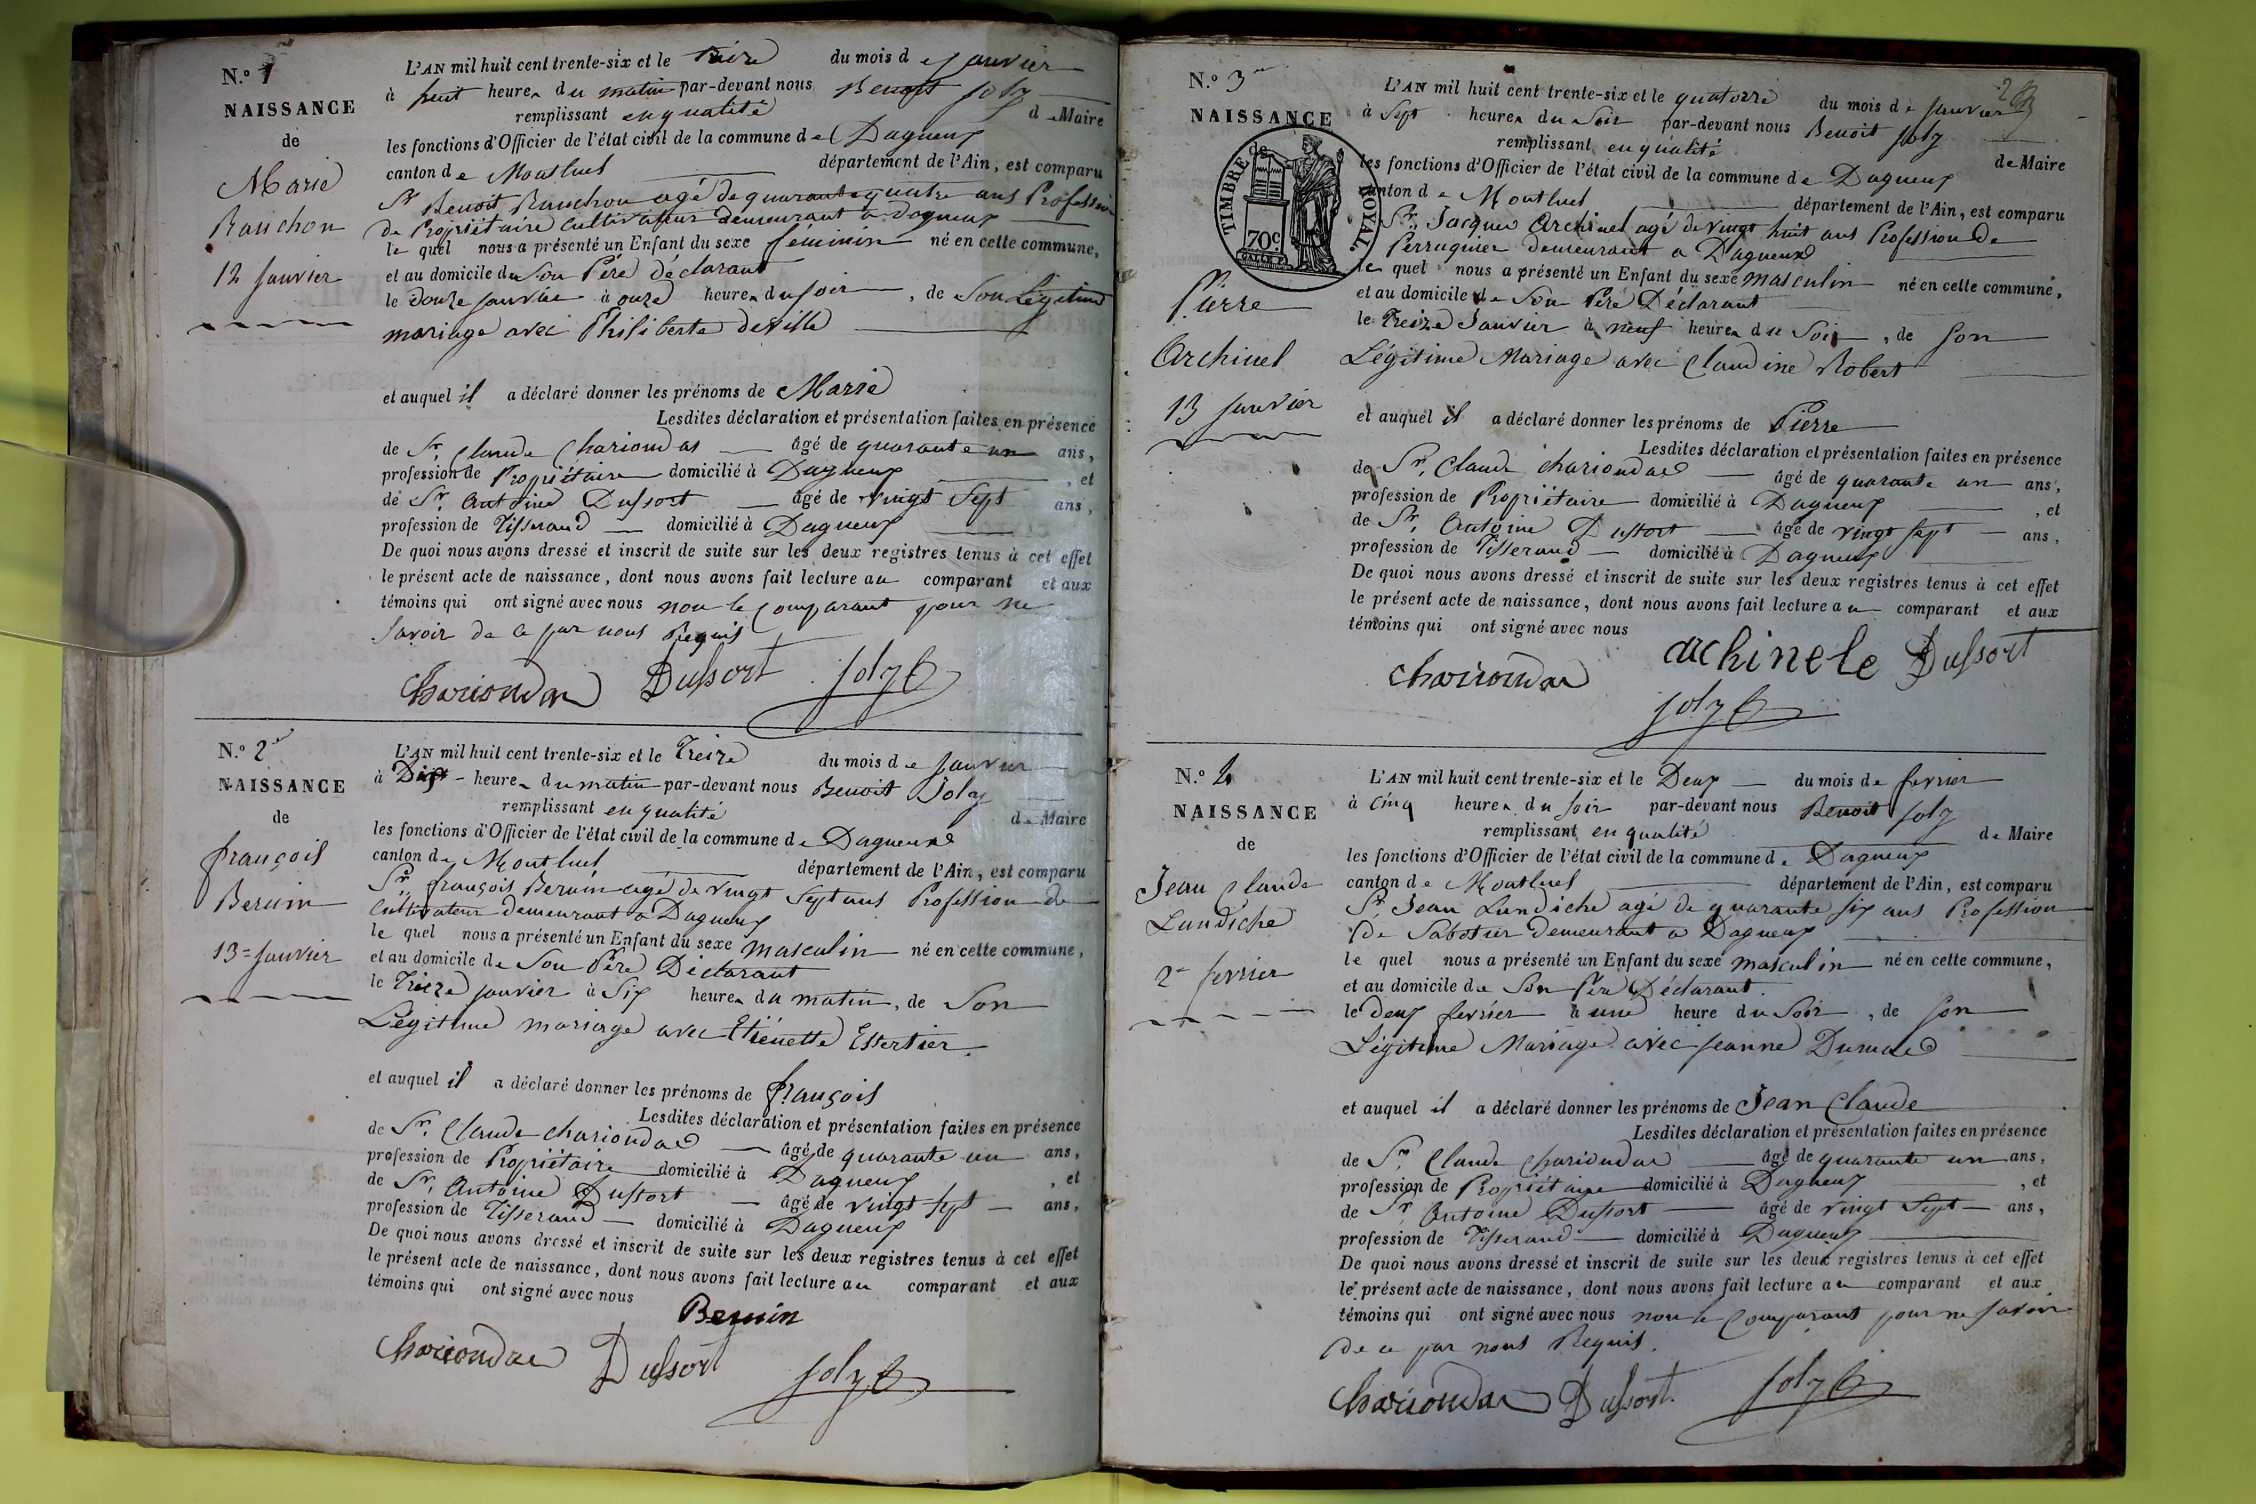 N.º 1
NAISSANCE
de
Marie
Ranchon
12 Janvier
L'AN mil huit cent trente-six et le treize du mois de Janvier
à huit heures du matin par-devant nous Benoit Joly
remplissant en qualité de Maire
les fonctions d'Officier de l'état civil de la commune de Dagneux
canton de Montluel département de l'Ain, est comparu
Sr. Benoit Ranchon agé de quarante quatre ans Profession
de Propriétaire Cultivateur demeurant a Dagneux
le quel nous a présenté un Enfant du sexe féminin né en cette commune,
et au domicile de Son Père Déclarant
le douze janvier à onze heures du soir, de Son Légitime
mariage avec Philiberte deville
et auquel il a déclaré donner les prénoms de Marie
Lesdites déclaration et présentation faites en présence
de Sr. Claude Chariondas âgé de quarante un ans,
profession de Propriétaire domicilié à Dagneux, et
de Sr. Antoine Dussort âgé de vingt Sept ans,
profession de Tisserand domicilié à Dagneux
De quoi nous avons dressé et inscrit de suite sur les deux registres tenus à cet effet
le présent acte de naissance, dont nous avons fait lecture au comparant et aux
témoins qui ont signé avec nous non le Comparant pour ne
Savoir de ce par nous Requis
Dussort Joly
N.º 2
NAISSANCE
de
françois
Beruin
13 Janvier
L'AN mil huit cent trente-six et le Treize du mois de Janvier
à Dix heures du matin par-devant nous Benoit Joly
remplissant en qualité de Maire
les fonctions d'Officier de l'état civil de la commune de Dagneux
canton de Montluel département de l'Ain, est comparu
Sr. françois Beruin agé de vingt Sept ans Profession de
Cultivateur demeurant a Dagneux
le quel nous a présenté un Enfant du sexe masculin né en cette commune,
et au domicile de Son Père Déclarant
le Treize janvier à Six heures du matin, de Son
Légitime mariage avec Etiènette Estertier
et auquel il a déclaré donner les prénoms de françois
Lesdites déclaration et présentation faites en présence
de Sr. Claude Chariondas âgé de quarante un ans,
profession de Propriétaire domicilié à Dagneux, et
de Sr. Antoine Dussort âgé de vingt Sept ans,
profession de Tisserand domicilié à Dagneux
De quoi nous avons dressé et inscrit de suite sur les deux registres tenus à cet effet
le présent acte de naissance, dont nous avons fait lecture au comparant et aux
témoins qui ont signé avec nous
Beruin
Dussort Joly
N.º 3
NAISSANCE
de
TIMBRE ROYAL.
70c
Pierre
Archinel
13 Janvier
L'AN mil huit cent trente-six et le quatorze du mois de Janvier
à Sept heures du Soir par-devant nous Benoit Joly
remplissant en qualité de Maire
les fonctions d'Officier de l'état civil de la commune de Dagneux
canton de Montluel département de l'Ain, est comparu
Sr. Jacques Archinel agé de vingt huit ans Profession de
Perruquier demeurant a Dagneux
le quel nous a présenté un Enfant du sexe masculin né en cette commune,
et au domicile de Son Père Déclarant
le Treize Janvier à neuf heures du Soir, de Son
Légitime Mariage avec Claudine Robert
et auquel il a déclaré donner les prénoms de Pierre
Lesdites déclaration et présentation faites en présence
de Sr. Claude Chariondas âgé de quarante un ans,
profession de Propriétaire domicilié à Dagneux, et
de Sr. Antoine Dussort âgé de vingt Sept ans,
profession de Tisserand domicilié à Dagneux
De quoi nous avons dressé et inscrit de suite sur les deux registres tenus à cet effet
le présent acte de naissance, dont nous avons fait lecture au comparant et aux
témoins qui ont signé avec nous
archinele Dussort
Joly
N.º 4
NAISSANCE
de
Jean Claude
Lundiche
2 fevrier
L'AN mil huit cent trente-six et le Deux du mois de fevrier
à cinq heures du soir par-devant nous Benoit Joly
remplissant en qualité de Maire
les fonctions d'Officier de l'état civil de la commune de Dagneux
canton de Montluel département de l'Ain, est comparu
Sr. Jean Lundiche agé de quarante six ans Profession
de Sabotier demeurant a Dagneux
le quel nous a présenté un Enfant du sexe masculin né en cette commune,
et au domicile de Son Père Déclarant
le deux fevrier à une heure du Soir, de Son
Légitime Mariage avec Jeanne
et auquel il a déclaré donner les prénoms de Jean Claude
Lesdites déclaration et présentation faites en présence
de Sr. Claude Chariondas âgé de quarante un ans,
profession de Propriétaire domicilié à Dagneux, et
de Sr. Antoine Dussort âgé de vingt Sept ans,
profession de Tisserand domicilié à Dagneux
De quoi nous avons dressé et inscrit de suite sur les deux registres tenus à cet effet
le présent acte de naissance, dont nous avons fait lecture au comparant et aux
témoins qui ont signé avec nous non le Comparant pour ne Savoir
de ce par nous Requis.
Dussort Joly